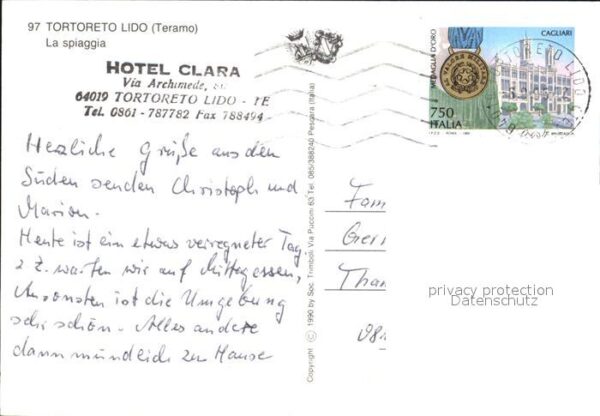 97 TORTORETO LIDO (Teramo)
La spiaggia
HOTEL CLARA
Via Archimede,
64019 TORTORETO LIDO - TE
Tel. 0861 - 787782 Fax 788494
Herzliche Grüße aus dem
Süden senden Christoph und
Marion.
Heute ist ein etwas verregneter Tag.
z Z. warten wir auf Mittagessen,
Ansonsten ist die Umgebung
sehr schön. Alles andere
dann mündlich zu Hause
Copyright © 1990 by Soc. Trimboli Via Puccini 63 Tel. 085/388240 Pescara (Italia)
MEDAGLIA D'ORO
CAGLIARI
750
ITALIA
TORTORETO LIDO
Fam
Ger
Than
privacy protection
Datenschutz